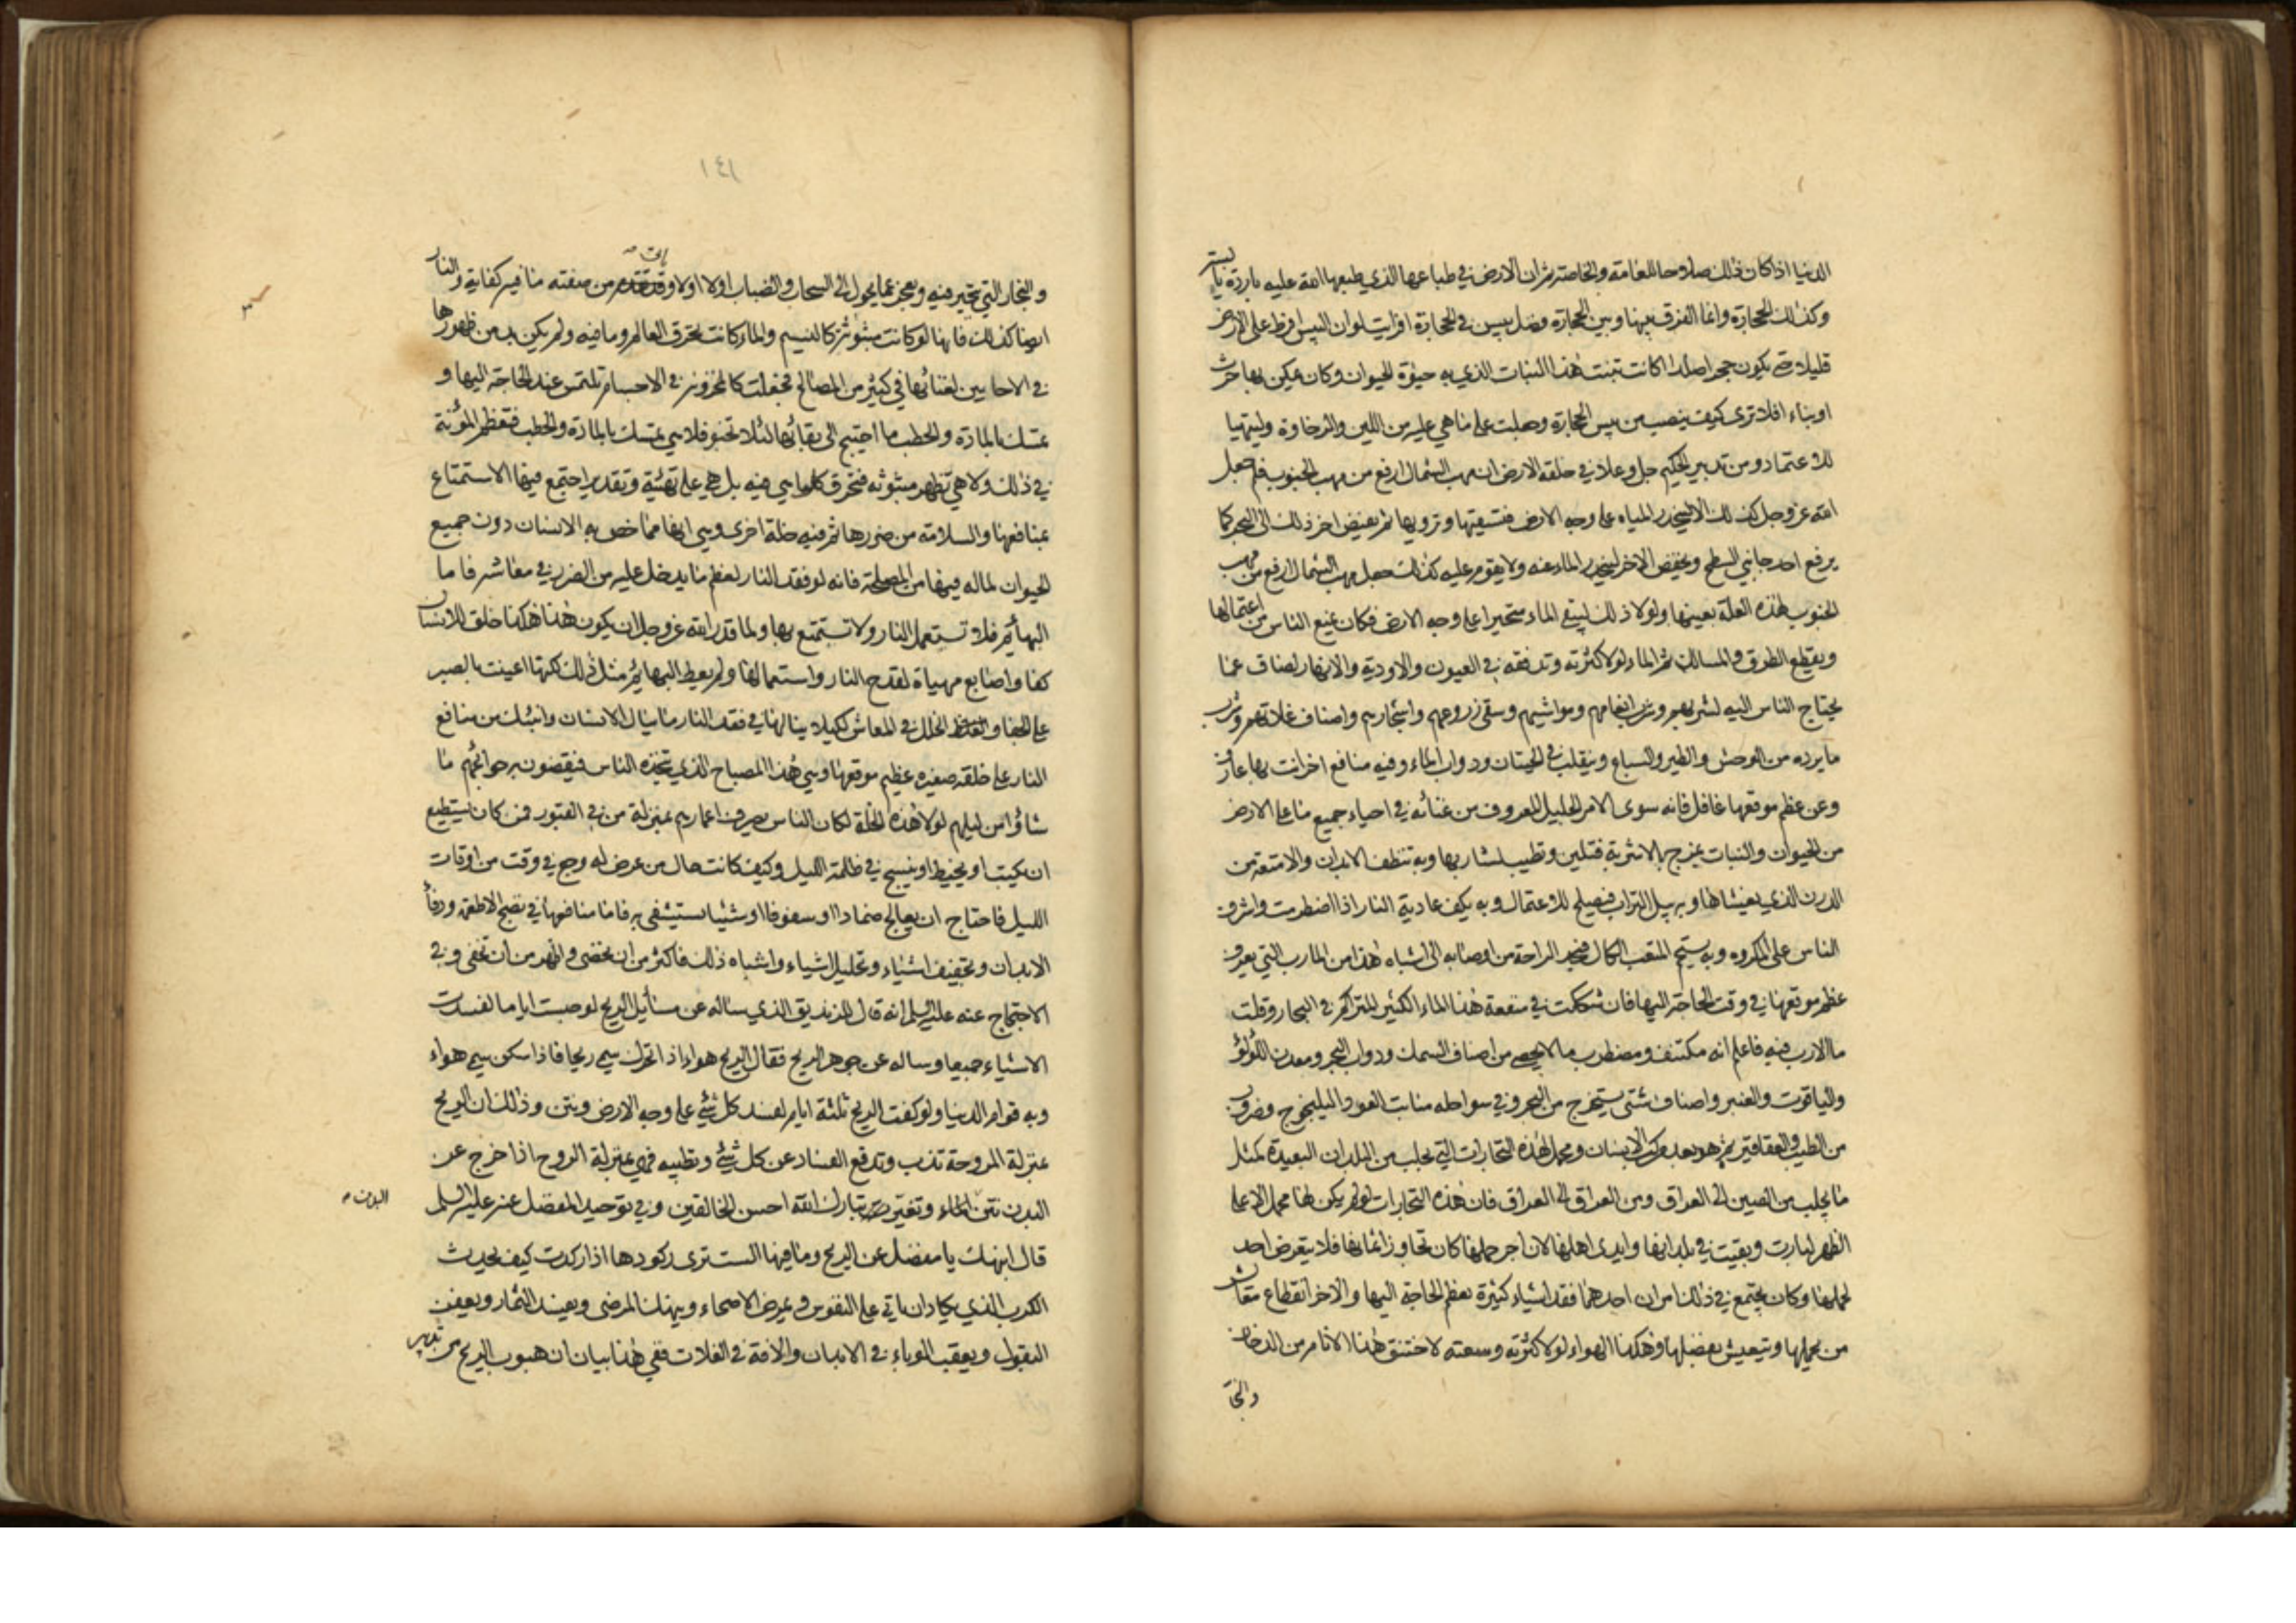 الدنيا اذا كان ذلك صلاحا للعامة والخاصة ثم ان الارض في طباعها الذي طبعها الله عليه باردة يابسة
وكذلك الحجارة وانما الفرق بينها وبين الحجارة فضل يبس في الحجارة افرايت لو ان اليبس افرط على الارض
قليلا حتى يكون حجرا صلدا اكانت تنبت هذا النبات الذي به حيوة الحيوان وكان يمكن بها حرث
او بناء افلا ترى كيف ينصب من يبس الحجارة وجعلت على ما هي عليه من اللين والرخاوة وليتهيا
للاعتماد ومن تدبير الحكيم جل وعلا في خلقة الارض ان مهب الشمال ارفع من مهب الجنوب فلم جعل
الله عز وجل كذلك الا لينحدر المياه على وجه الارض فتسقيها وترويها ثم يفيض اخر ذلك الى البحر كما
يرفع احد جانبي السطح ويخفض الاخر لينحدر الماء عنه ولا يقوم عليه كذلك جعل مهب الشمال ارفع من مهب
الجنوب لهذه العلة بعينها ولولا ذلك لبقي الماء متحيرا على وجه الارض فكان يمنع الناس من اعتمالها
ويقطع الطرق والمسالك ثم الماء لولا كثرته وتدفقه في العيون والاودية والانهار لضاق عما
يحتاج الناس اليه لشربهم وشرب انعامهم ومواشيهم وسقي زروعهم واشجارهم واصناف غلاتهم وشرب
ما يرده من الوحش والطير والسباع ويتقلب فيه الحيتان ودواب الماء وفيه منافع اخر انت بها عارف
وعن عظم موقعها غافل فانه سوى الامر الجليل المعروف من غنائه في احياء جميع ما على الارض
من الحيوان والنبات يمزج بالاشربة فتلين وتطيب لشاربها وبه تنظف الابدان والامتعة من
الدرن الذي يغشاها وبه يبل التراب فيصلح للاعتمال وبه يكف عادية النار اذا اضطرمت واشرف
الناس على المكروه وبه يستحم المتعب الكال فيجد الراحة من اوصابه الى اشباه هذا من المارب التي يعرف
عظم موقعها في وقت الحاجة اليها فان شككت في منفعة هذا الماء الكثير المتراكم في البحار وقلت
ما الارب فيه فاعلم انه مكتنف ومضطرب ما لا يحصى من اصناف السمك ودواب البحر ومعدن اللؤلؤ
والياقوت والعنبر واصناف شتى يستخرج من البحر وفي سواحله منابت العود واليلنجوج وضروب
من الطيب والعقاقير ثم هو بعد مركب الانسان ومحمل لهذه التجارات التي تجلب من البلدان البعيدة كمثل
ما يجلب من الصين الى العراق ومن العراق الى العراق فان هذه التجارات لو لم يكن لها محمل الا على
الظهر لبارت وبقيت في بلدانها وايدي اهلها لان اجر حملها كان تجاوز اثمانها فلا يتعرض احد
لحملها وكان يجتمع في ذلك امران احدهما فقد اشياء كثيرة يعظم الحاجة اليها والاخر انقطاع معاش
من يحملها ويتعيش بفضلها وهكذا الهواء لولا كثرته وسعته لاختنق هذا الانام من الدخان
والبخا
١٤١
والبخار التي يتحير فيه ويعجز عما يحول الى السحاب والضباب اولا اولا وقد تقدم من صفته ما فيه كفاية والنار
ايضا كذلك فانها لو كانت مبثوثة كالنسيم والماء كانت تحرق العالم وما فيه ولم يكن بد من ظهورها
في الاحايين لغنائها في كثير من المصالح فجعلت كالمخزونة في الاجسام تلتمس عند الحاجة اليها و
تمسك بالمادة والحطب ما احتيج الى بقائها لئلا تخبو فلا هي تمسك بالمادة والحطب فتعظم المؤنة
في ذلك ولا هي تظهر مبثوثه فتحرق كلما هي فيه بل هي على تهيئة وتقدير اجتمع فيها الاستمتاع
بمنافعها والسلامة من ضررها ثم فيه خلة اخرى وهي انها مما خص به الانسان دون جميع
الحيوان لماله فيها من المصلحة فانه لو فقد النار لعظم ما يدخل عليه من الضرر في معاشه فاما
البهائم فلا تستعمل النار ولا تستمتع بها ولما قدر الله عز وجل ان يكون هذا هكذا خلق للانسان
كفا واصابع مهياة لقدح النار واستعمالها ولم يعط البهائم مثل ذلك لكنها اعينت بالصبر
على الجفا والخلل في المعاش لكيلا ينالها في فقد النار ما ينال الانسان وانبئك من منافع
النار على خلقة صغيره عظيم موقعها وهي هذا المصباح الذي يتخذه الناس فيقضون به حوائجهم ما
شاؤا من ليلهم لولا هذه الخلة لكان الناس يصرف اعمارهم بمنزلة من في القبور فمن كان يستطيع
ان يكتب او يخيط او ينسج في ظلمة الليل وكيف كانت حال من عرض له وجع في وقت من اوقات
الليل فاحتاج ان يعالج ضمادا او سفوفا او شيئا يستشفي به فاما منافعها في نضج الاطعمة ودفأ
الابدان وتجفيف اشياء وتحليل اشياء واشباه ذلك فاكثر من ان تحصى واظهر من ان تخفى وفي
الاحتجاج عنه عليه السلم انه قال للزنديق الذي ساله عن مسائل الريح لو حبست اياما لفسدت
الاشياء جميعا وساله عن جوهر الريح فقال الريح هواء اذا تحرك سمي ريحا فاذا سكن سمي هواء
وبه قوام الدنيا ولو كفت الريح ثلثة ايام لفسد كل شئ على وجه الارض ونتن وذلك ان الريح
بمنزلة المروحة تذب وتدفع الفساد عن كل شئ وتطيبه فهي بمنزلة الروح اذا خرج عن
البدن نتن وتغير تبارك الله احسن الخالقين وفي توحيد المفضل عنه عليه السلم
البدن
قال انبهك يا مفضل عن الريح وما فيها الست ترى ركودها اذا ركدت كيف يحدث
الكرب الذي يكاد ان ياتي على النفوس ويمرض الاصحاء وينهك المرضى ويفسد الثمار ويعفن
البقول ويعقب الوباء في الابدان والافة في الغلات ففي هذا بيان ان هبوب الريح من تدبير